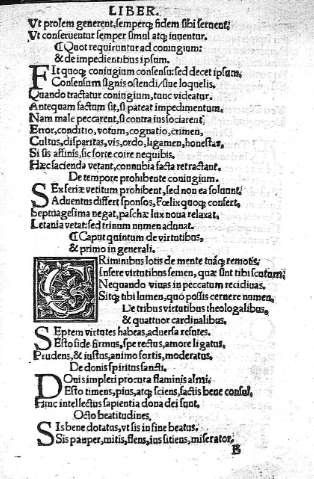 LIBER.
Ut prolem generent, semperq; fidem sibi seruent;
Ut conseruentur semper simul atq; inuentur.
¶ Quot requiruntur ad coniugium:
& de impedientibus ipsum.
Fit quoq; coniugium consensu: sed decet ipsum,
Consensum signis ostendi, siue loquelis.
Quando tractatur coniugium, tunc videatur.
Antequam factum sit, si pateat impedimentum,
Nam male peccarent, si contra ius sociarent;
Error, conditio, votum, cognatio, crimen,
Cultus, disparitas, vis, ordo, ligamen, honestas,
Si sis affinis, sic forte coire nequibis.
Hæc sacienda vetant, connubia facta retractant.
De tempore prohibente coniugium.
Sex feriæ vetitum prohibent, sed non ea soluunt;
Aduentus differt sponsos, Fœlixq; confert,
Septuagesima negat, paschæ lux noua relaxat,
Letania vetat: sed trinum numen adunat.
¶ Caput quintum de virtutibus,
& primo in generali.
CRiminibus lotis de mente tuáq; remotis;
Insere virtutibus semen, quæ sint tibi scutum;
Nequando vinas in peccatum recidiuas.
Sitq; tibi lumen, quo possis cernere numen,
De tribus virtutibus theologalibus,
& quattuor cardinalibus.
Septem virtutes habeas, aduersa resutes.
Esto fide firmus, spe rectus, amore ligatus,
Prudens, & iustus, animo fortis, moderatus,
De donis spiritus sancti.
Donis impleri procura flaminis almi;
Esto timens, pius, atq; sciens, factis bene consul,
Hinc intellectus sapientia dona dei sunt.
Octo beatitudines.
Sis bene dotatus, vt sis in fine beatus;
Sis pauper, mitis, flens, ius sitiens, miserator;
B